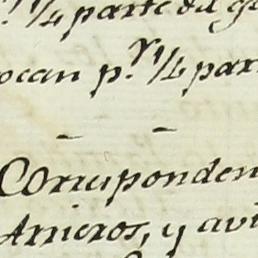 r. 1/4 parte del g
ocan p.r 1/4 par
Corresponden
Arrieros, y avi